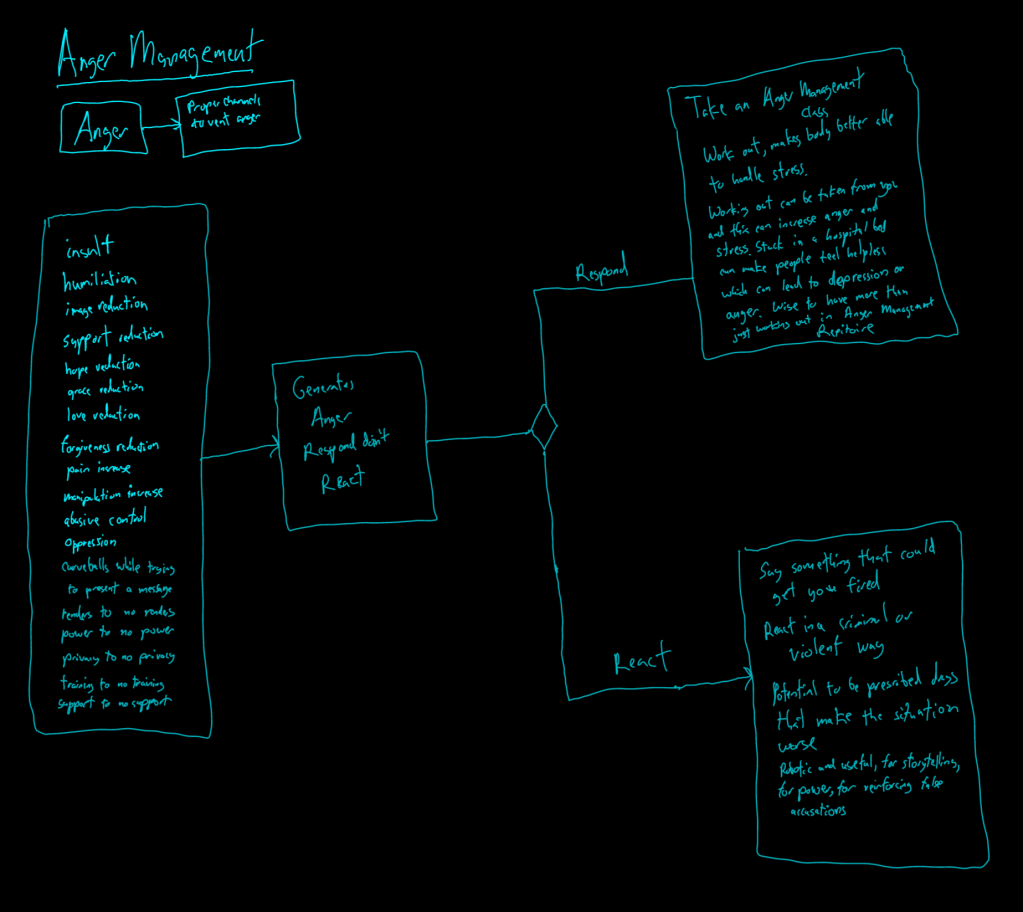 Anger Management
Anger
Proper channels
to vent anger
insult
humiliation
image reduction
support reduction
hope reduction
grace reduction
love reduction
forgiveness reduction
pain increase
manipulation increase
abusive control
oppression
Curveballs while trying
to present a message
renders to no renders
power to no power
privacy to no privacy
training to no training
support to no support
Generates
Anger
Respond don't
React
Respond
Take an Anger Management
class
Work out, makes body better able
to handle stress.
Working out can be taken from you
and this can increase anger and
stress. Stuck in a hospital bed
can make people feel helpless
which can lead to depression or
anger. Wise to have more than
just working out in Anger Management
Repitoire
React
Say something that could
get you fired
React in a criminal or
violent way
Potential to be prescribed drugs
that make the situation
worse
Robotic and useful, for storytelling,
for power, for reinforcing false
accusations